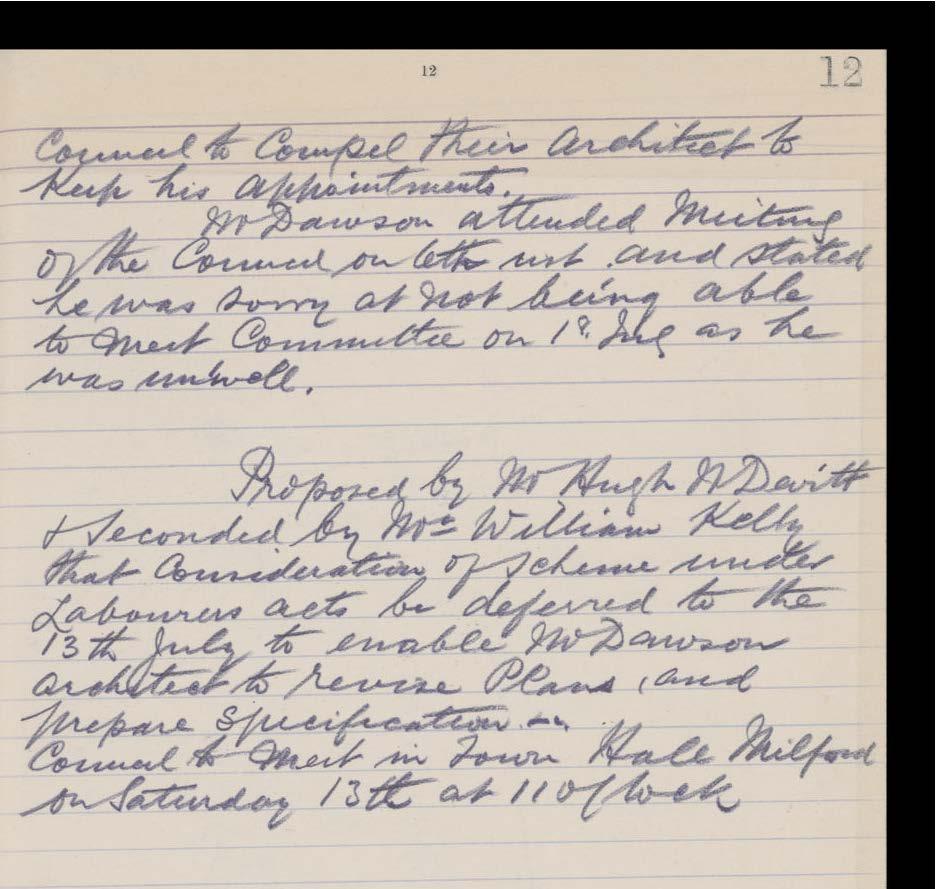 12
12
Council to Compel their Architect to
Keep his appointments.
Mr Dawson attended Meeting
of the Council on 6th inst. and stated
he was sorry at not being able
to meet Committee on 1st July as he
was unwell.
Proposed by Mr Hugh McDevitt
& Seconded by Mr William Kelly
that Consideration of Scheme under
Labourers acts be deferred to the
13th July to enable Mr Dawson
architect to revise Plans, and
prepare Specification
Council to Meet in Town Hall Milford
on Saturday 13th at 11 O'Clock